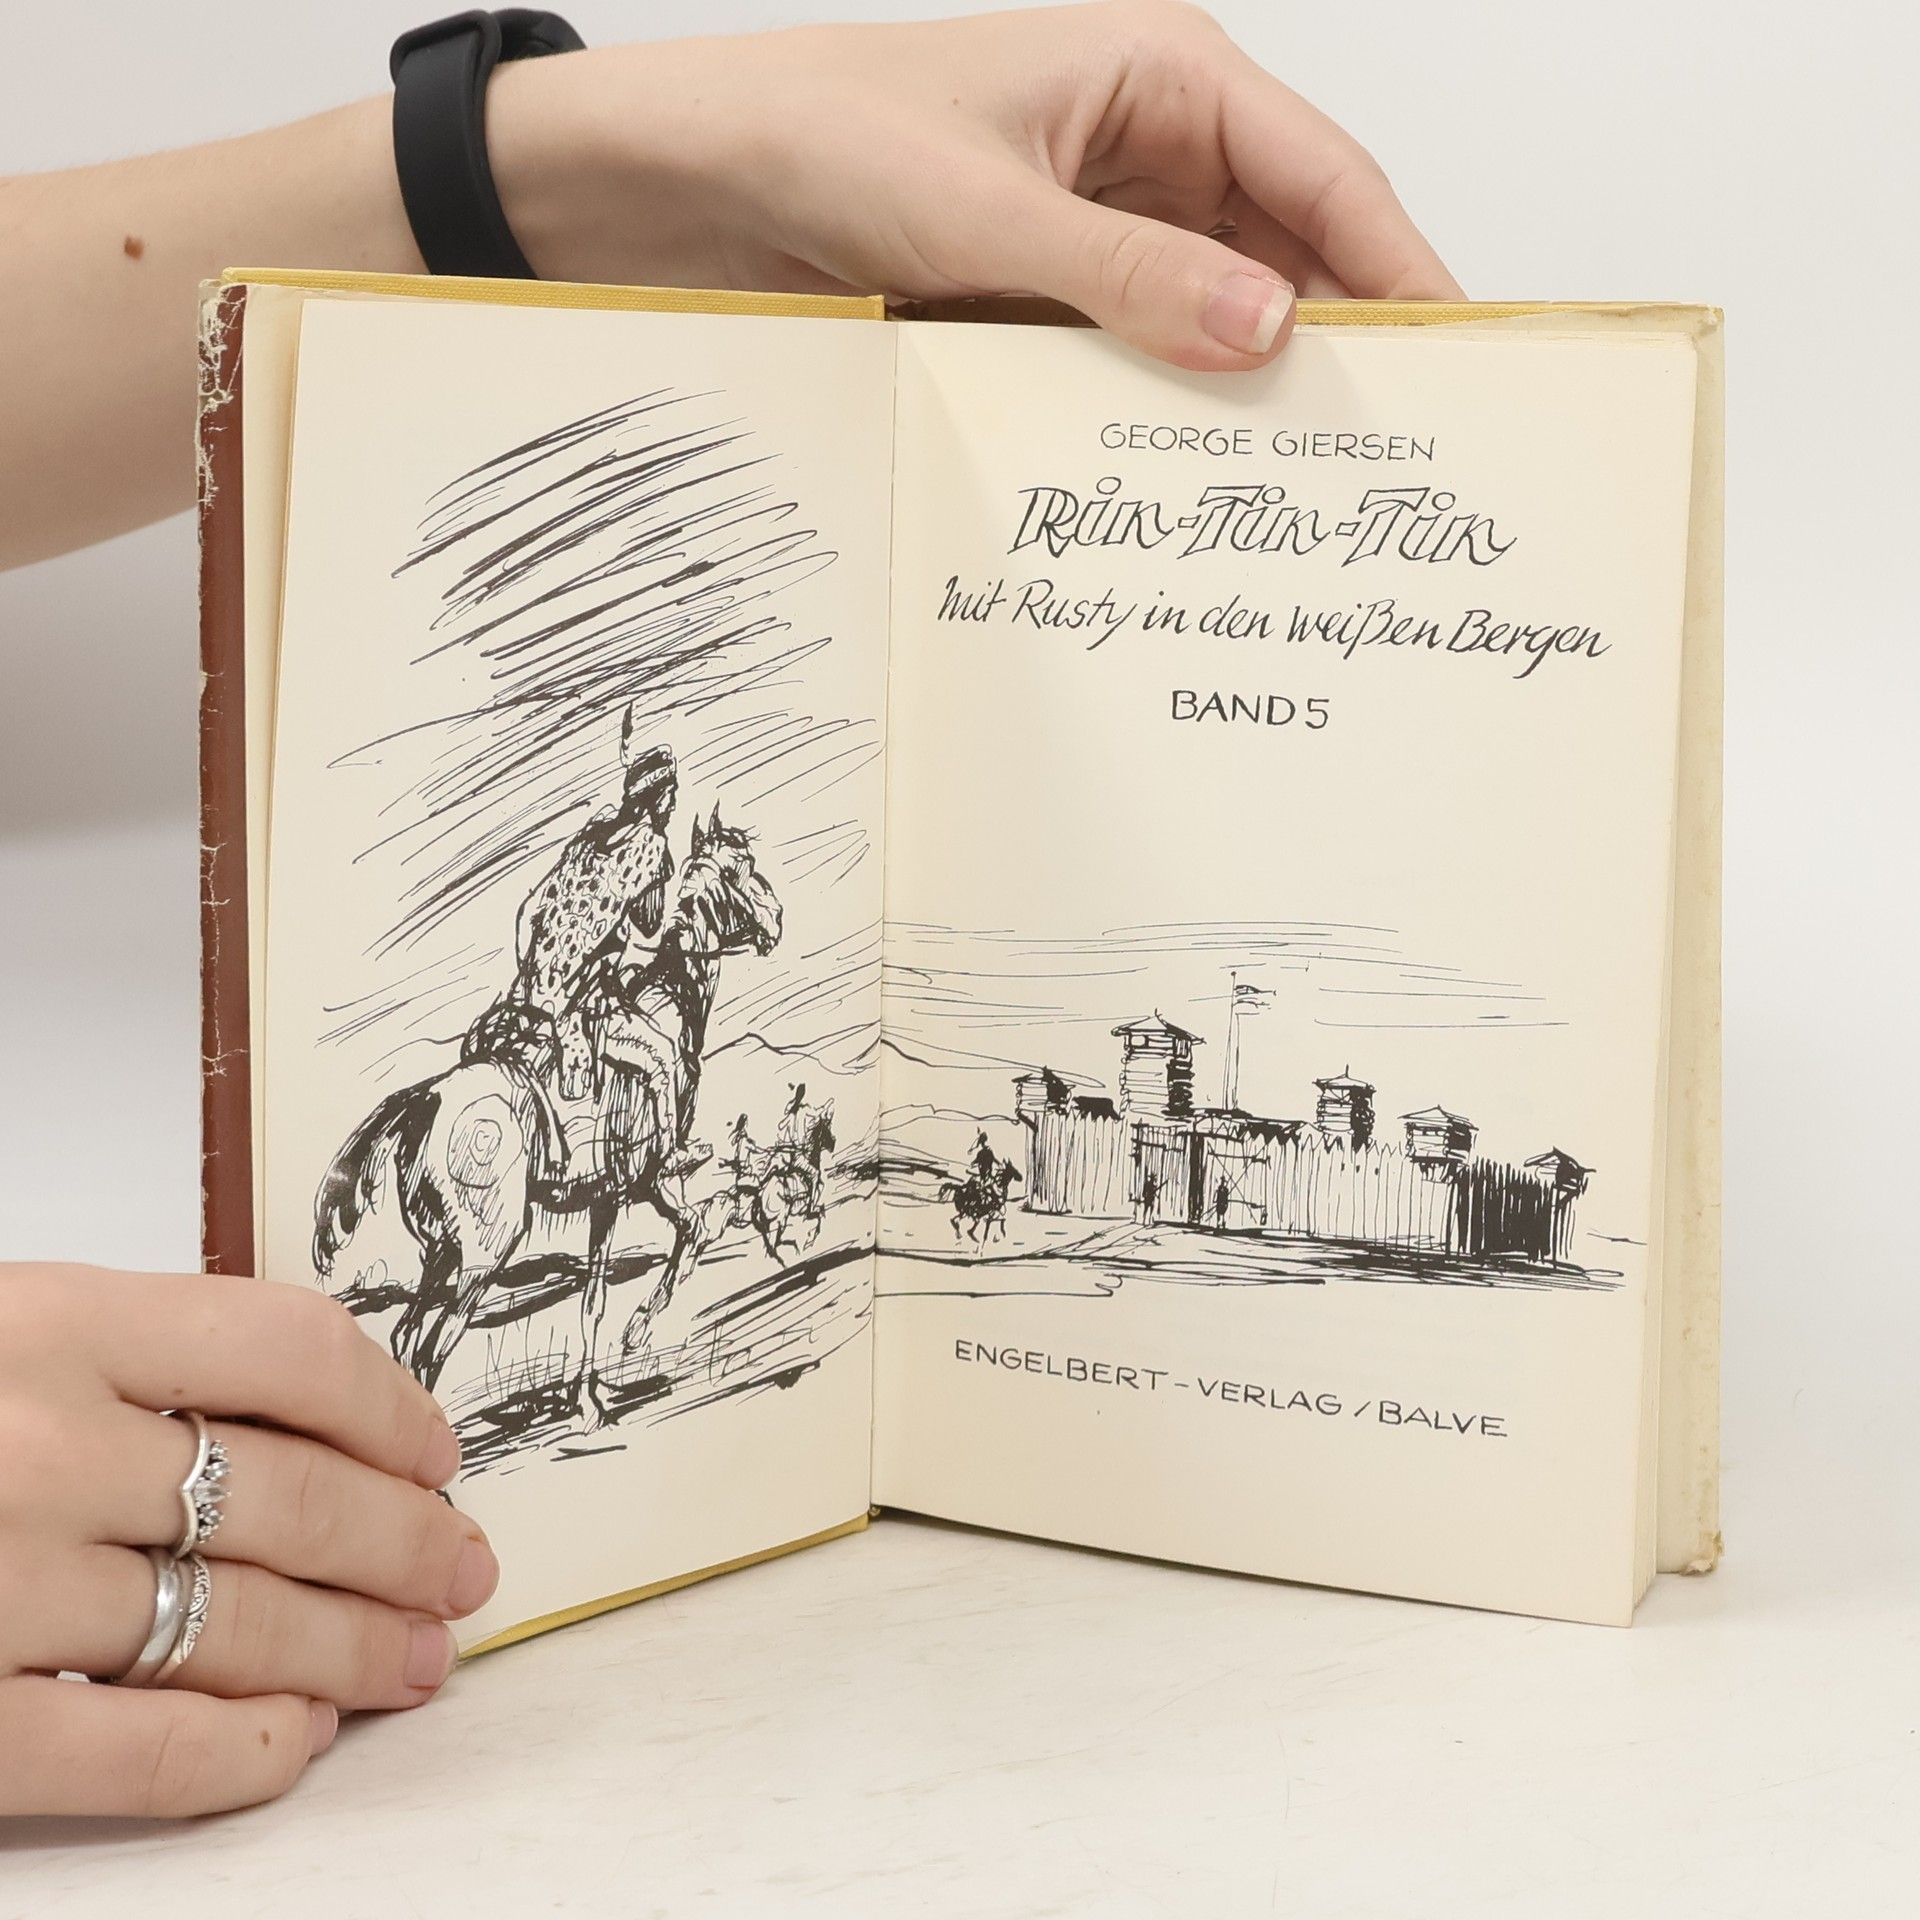 GEORGE GIERSEN
Rin-Tin-Tin
mit Rusty in den weißen Bergen
BAND 5
ENGELBERT-VERLAG / BALVE